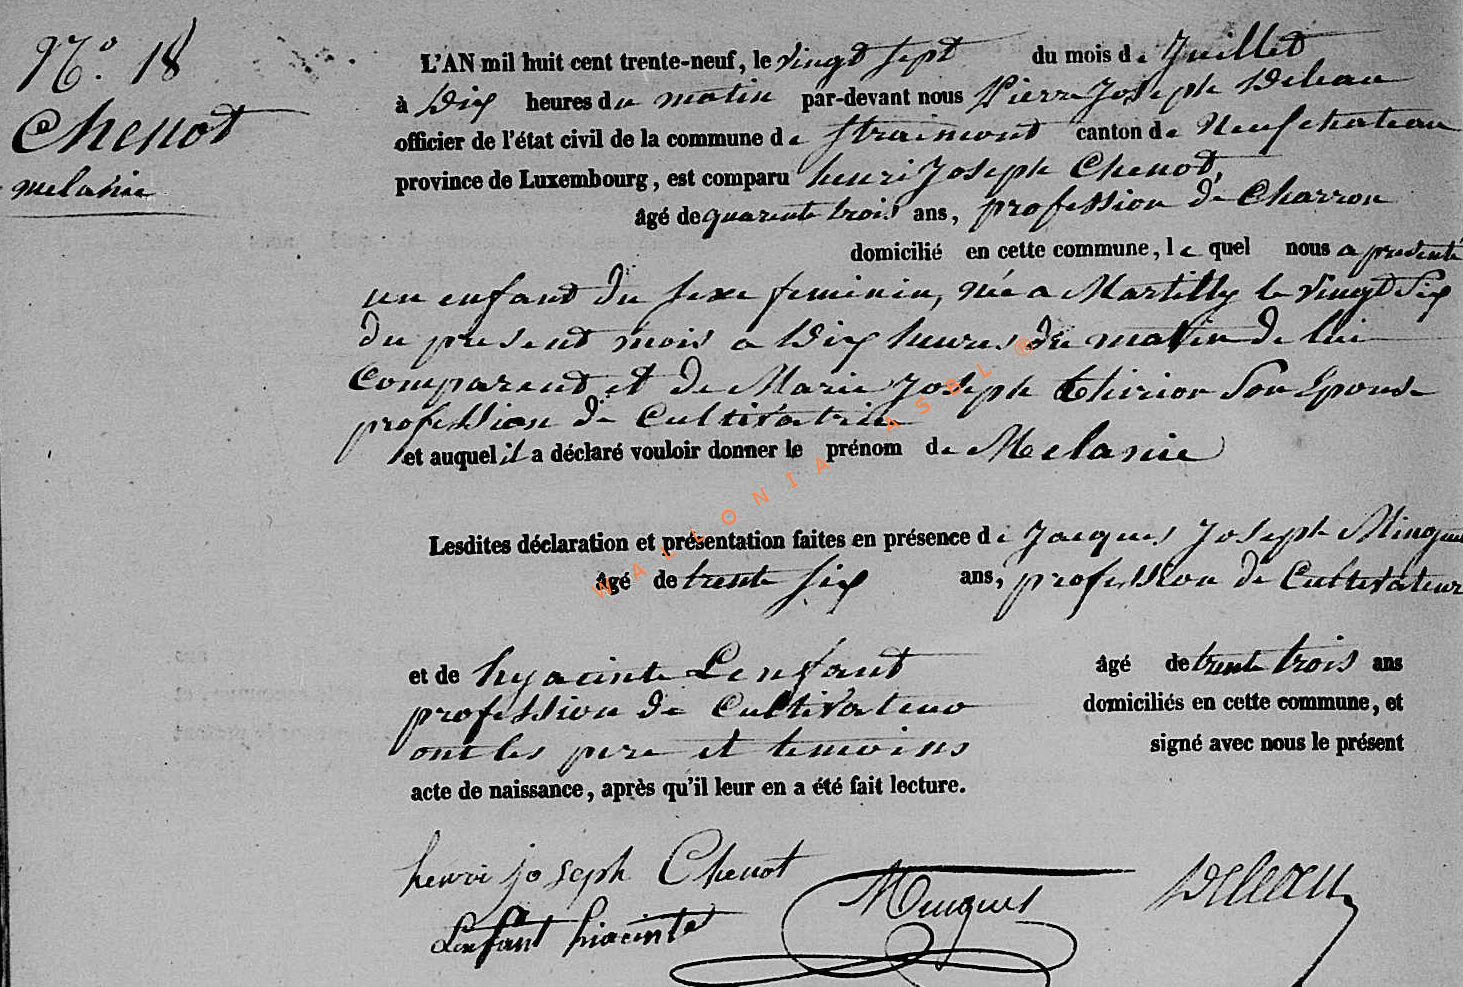 N.° 18
Chenot
melanie
L'AN mil huit cent trente-neuf, le vingt sept du mois de Juillet
à Dix heures du matin par-devant nous Pierre Joseph Deleau
officier de l'état civil de la commune de Straimont canton de Neufchateau
province de Luxembourg, est comparu henri Joseph Chenot,
âgé de quarente trois ans, profession de Charron
domicilié en cette commune, le quel nous a presenté
un enfant du sexe feminin, née a Martilly le vingt Six
du present mois a Dix heures du matin de lui
Comparent et de Marie Joseph thirion Son Epouse
profession de Cultivatrice
et auquel il a déclaré vouloir donner le prénom de Melanie
Lesdites déclaration et présentation faites en présence de Jacques Joseph
âgé de trente Six ans, profession de Cultivateur
et de hyacinte Lenfant âgé de trente trois ans
profession de Cultivateur domiciliés en cette commune, et
ont les pere et temoins signé avec nous le présent
acte de naissance, après qu'il leur en a été fait lecture.
henri joseph Chenot
Deleau
Lenfant hiacinte
WALLONIA ASBL ®